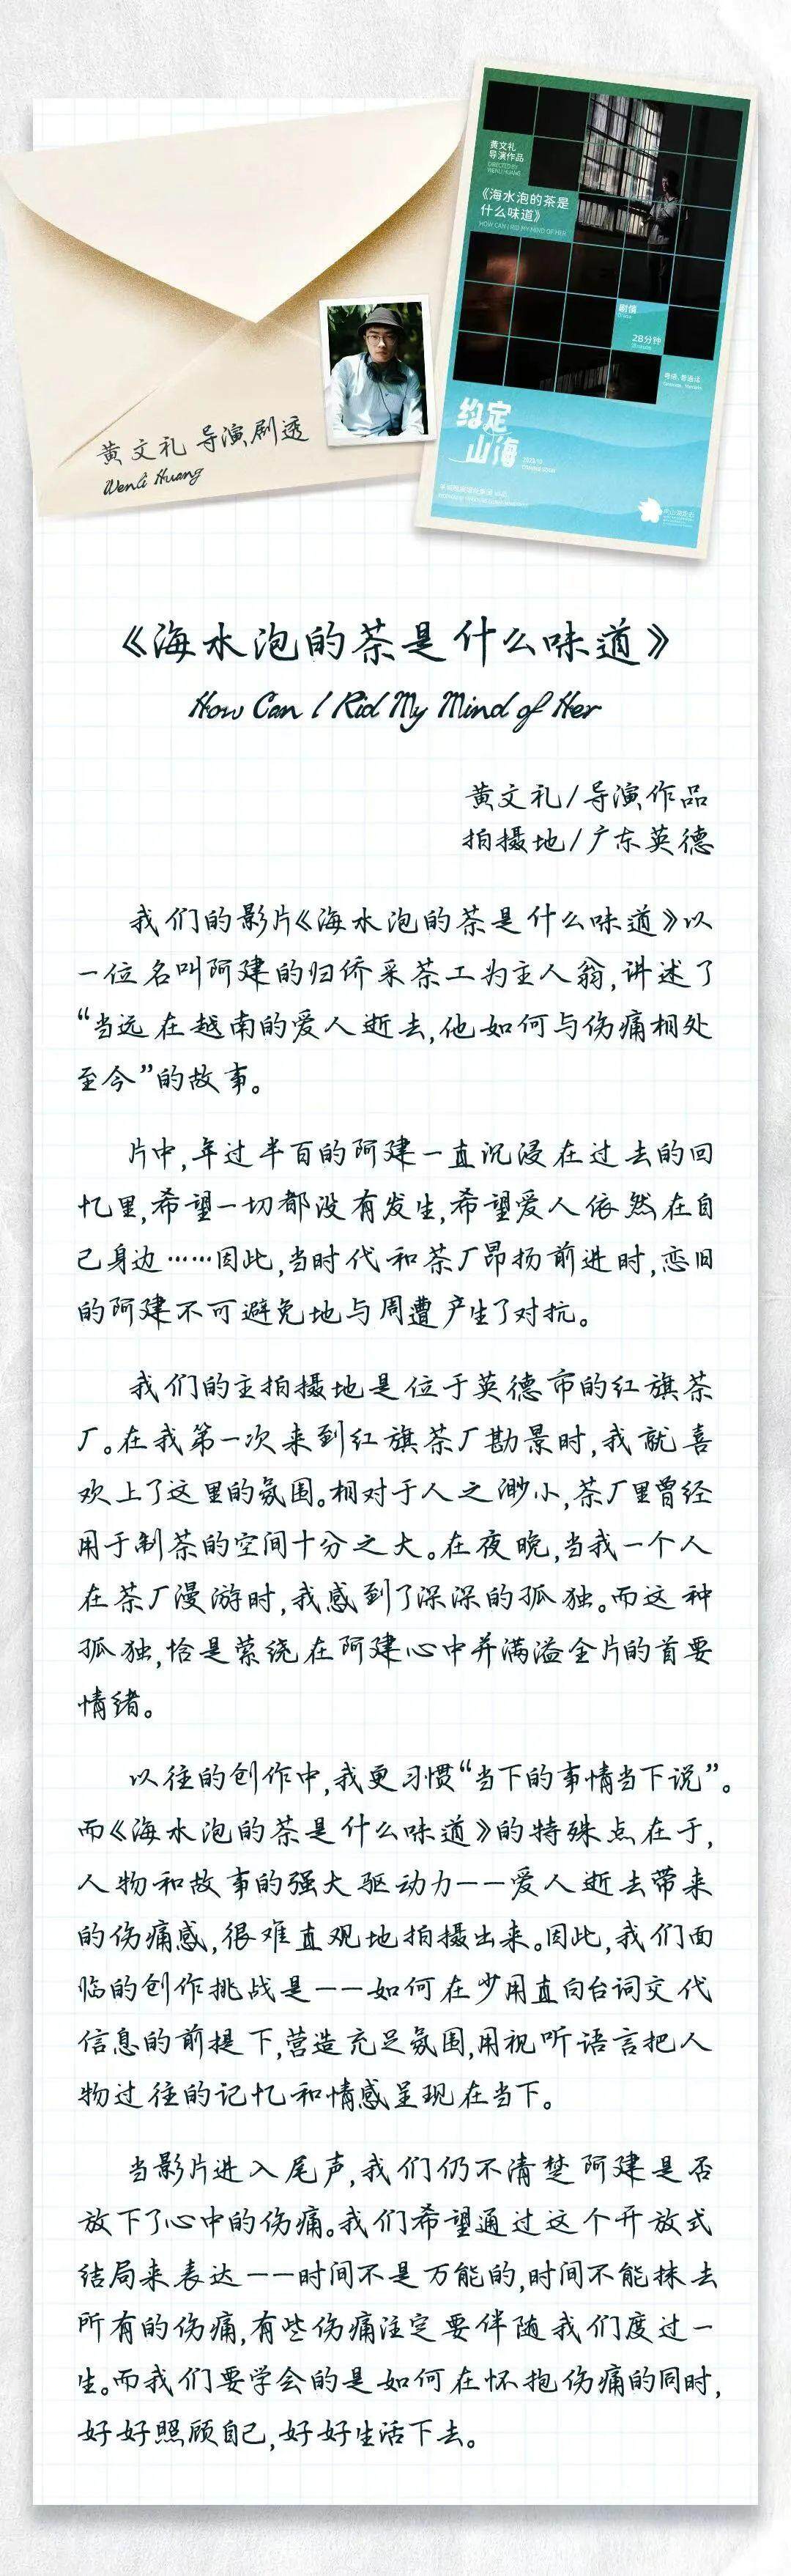 黄文礼
导演作品
DIRECTED BY
WENLI HUANG
《海水泡的茶是
什么味道》
HOW CAN I RID MY MIND OF HER
剧情
28分钟
约定
山海
黄文礼 导演剧透
Wenli Huang
《海水泡的茶是什么味道》
How Can I Rid My Mind of Her
黄文礼/导演作品
拍摄地/广东英德
我们的影片《海水泡的茶是什么味道》以
一位名叫阿建的归侨采茶工为主人翁,讲述了
“当远在越南的爱人逝去,他如何与伤痛相处
至今”的故事。
片中,年过半百的阿建一直沉浸在过去的回
忆里,希望一切都没有发生,希望爱人依然在自
己身边……因此,当时代和茶厂昂扬前进时,恋旧
的阿建不可避免地与周遭产生了对抗。
我们的主拍摄地是位于英德市的红旗茶
厂。在我第一次来到红旗茶厂勘景时,我就喜
欢上了这里的氛围。相对于人之渺小,茶厂里曾经
用于制茶的空间十分之大。在夜晚,当我一个人
在茶厂漫游时,我感到了深深的孤独。而这种
孤独,恰是萦绕在阿建心中并满溢全片的首要
情绪。
以往的创作中,我更习惯“当下的事情当下说”。
而《海水泡的茶是什么味道》的特殊点在于,
人物和故事的强大驱动力——爱人逝去带来
的伤痛感,很难直观地拍摄出来。因此,我们面
临的创作挑战是——如何在少用直白台词交代
信息的前提下,营造充足氛围,用视听语言把人
物过往的记忆和情感呈现在当下。
当影片进入尾声,我们仍不清楚阿建是否
放下了心中的伤痛。我们希望通过这个开放式
结局来表达——时间不是万能的,时间不能抹去
所有的伤痛,有些伤痛注定要伴随我们度过一
生。而我们要学会的是如何在怀抱伤痛的同时,
好好照顾自己,好好生活下去。